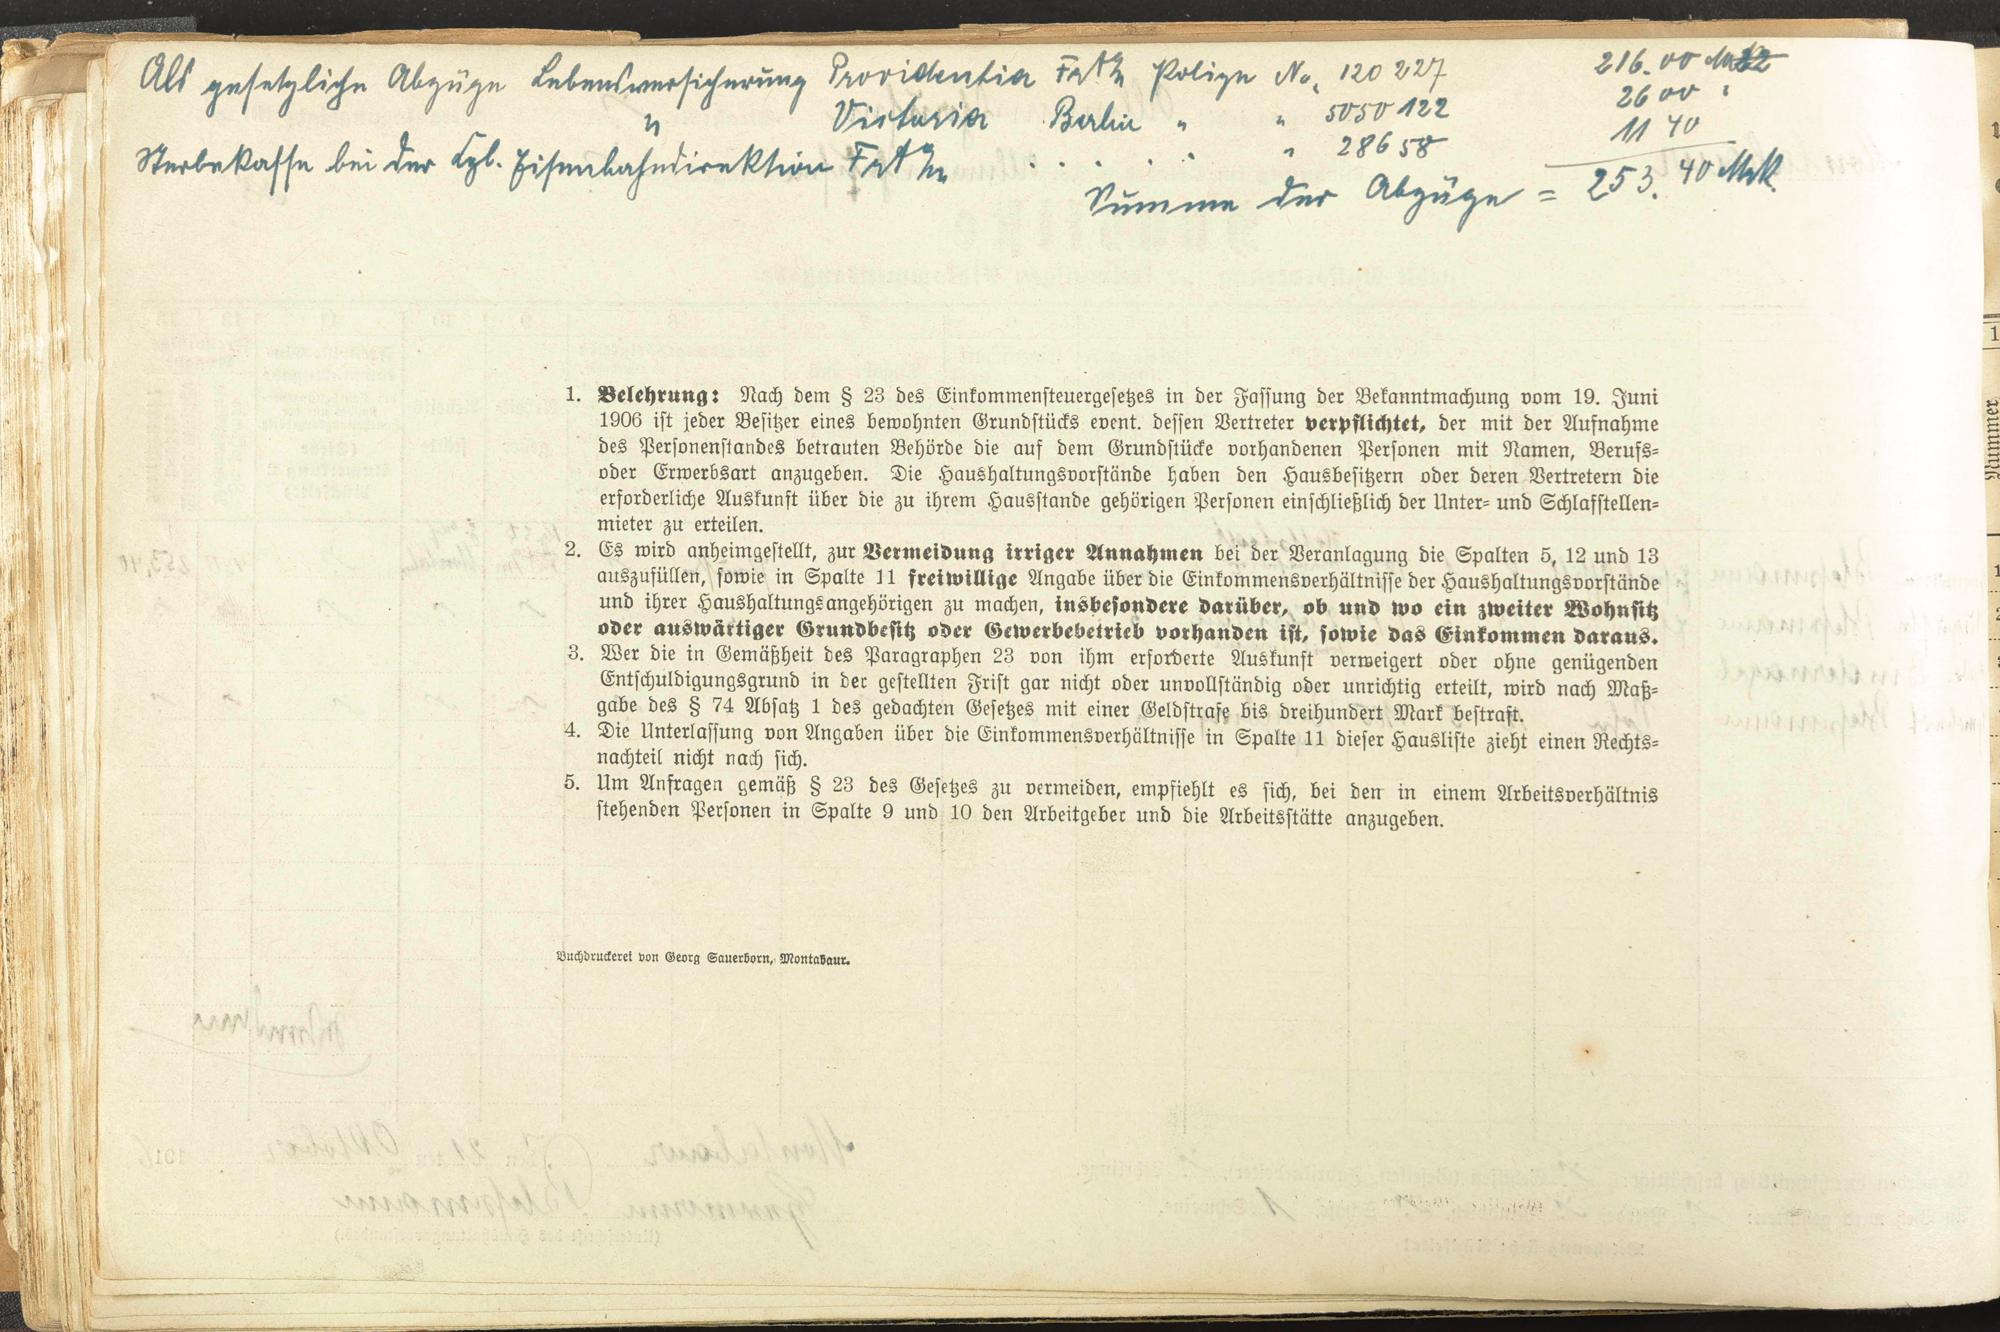 Als gesetzliche Abzüge Lebensversicherung Providentia Frkf Polize No. 120 227 216.00 Mrk
" Victoria Berlin " " 5050 122 26 00 "
Sterbekasse bei der Kgl. Eisenbahndirektion . . . . . " 286 58 11 40
Summe der Abzüge = 253. 40 Mrk.
1. Belehrung: Nach dem § 23 des Einkommensteuergesetzes in der Fassung der Bekanntmachung vom 19. Juni
1906 ist jeder Besitzer eines bewohnten Grundstücks event. dessen Vertreter verpflichtet, der mit der Aufnahme
des Personenstandes betrauten Behörde die auf dem Grundstücke vorhandenen Personen mit Namen, Berufs-
oder Erwerbsart anzugeben. Die Haushaltungsvorstände haben den Hausbesitzern oder deren Vertretern die
erforderliche Auskunft über die zu ihrem Hausstande gehörigen Personen einschließlich der Unter- und Schlafstellen-
mieter zu erteilen.
2. Es wird anheimgestellt, zur Vermeidung irriger Annahmen bei der Veranlagung die Spalten 5, 12 und 13
auszufüllen, sowie in Spalte 11 freiwillige Angabe über die Einkommensverhältnisse der Haushaltungsvorstände
und ihrer Haushaltungsangehörigen zu machen, insbesondere darüber, ob und wo ein zweiter Wohnsitz
oder auswärtiger Grundbesitz oder Gewerbebetrieb vorhanden ist, sowie das Einkommen daraus.
3. Wer die in Gemäßheit des Paragraphen 23 von ihm erforderte Auskunft verweigert oder ohne genügenden
Entschuldigungsgrund in der gestellten Frist gar nicht oder unvollständig oder unrichtig erteilt, wird nach Maß-
gabe des § 74 Absatz 1 des gedachten Gesetzes mit einer Geldstrafe bis dreihundert Mark bestraft.
4. Die Unterlassung von Angaben über die Einkommensverhältnisse in Spalte 11 dieser Hausliste zieht einen Rechts-
nachteil nicht nach sich.
5. Um Anfragen gemäß § 23 des Gesetzes zu vermeiden, empfiehlt es sich, bei den in einem Arbeitsverhältnis
stehenden Personen in Spalte 9 und 10 den Arbeitgeber und die Arbeitsstätte anzugeben.
Buchdruckerei von Georg Sauerborn, Montabaur.
Nummer